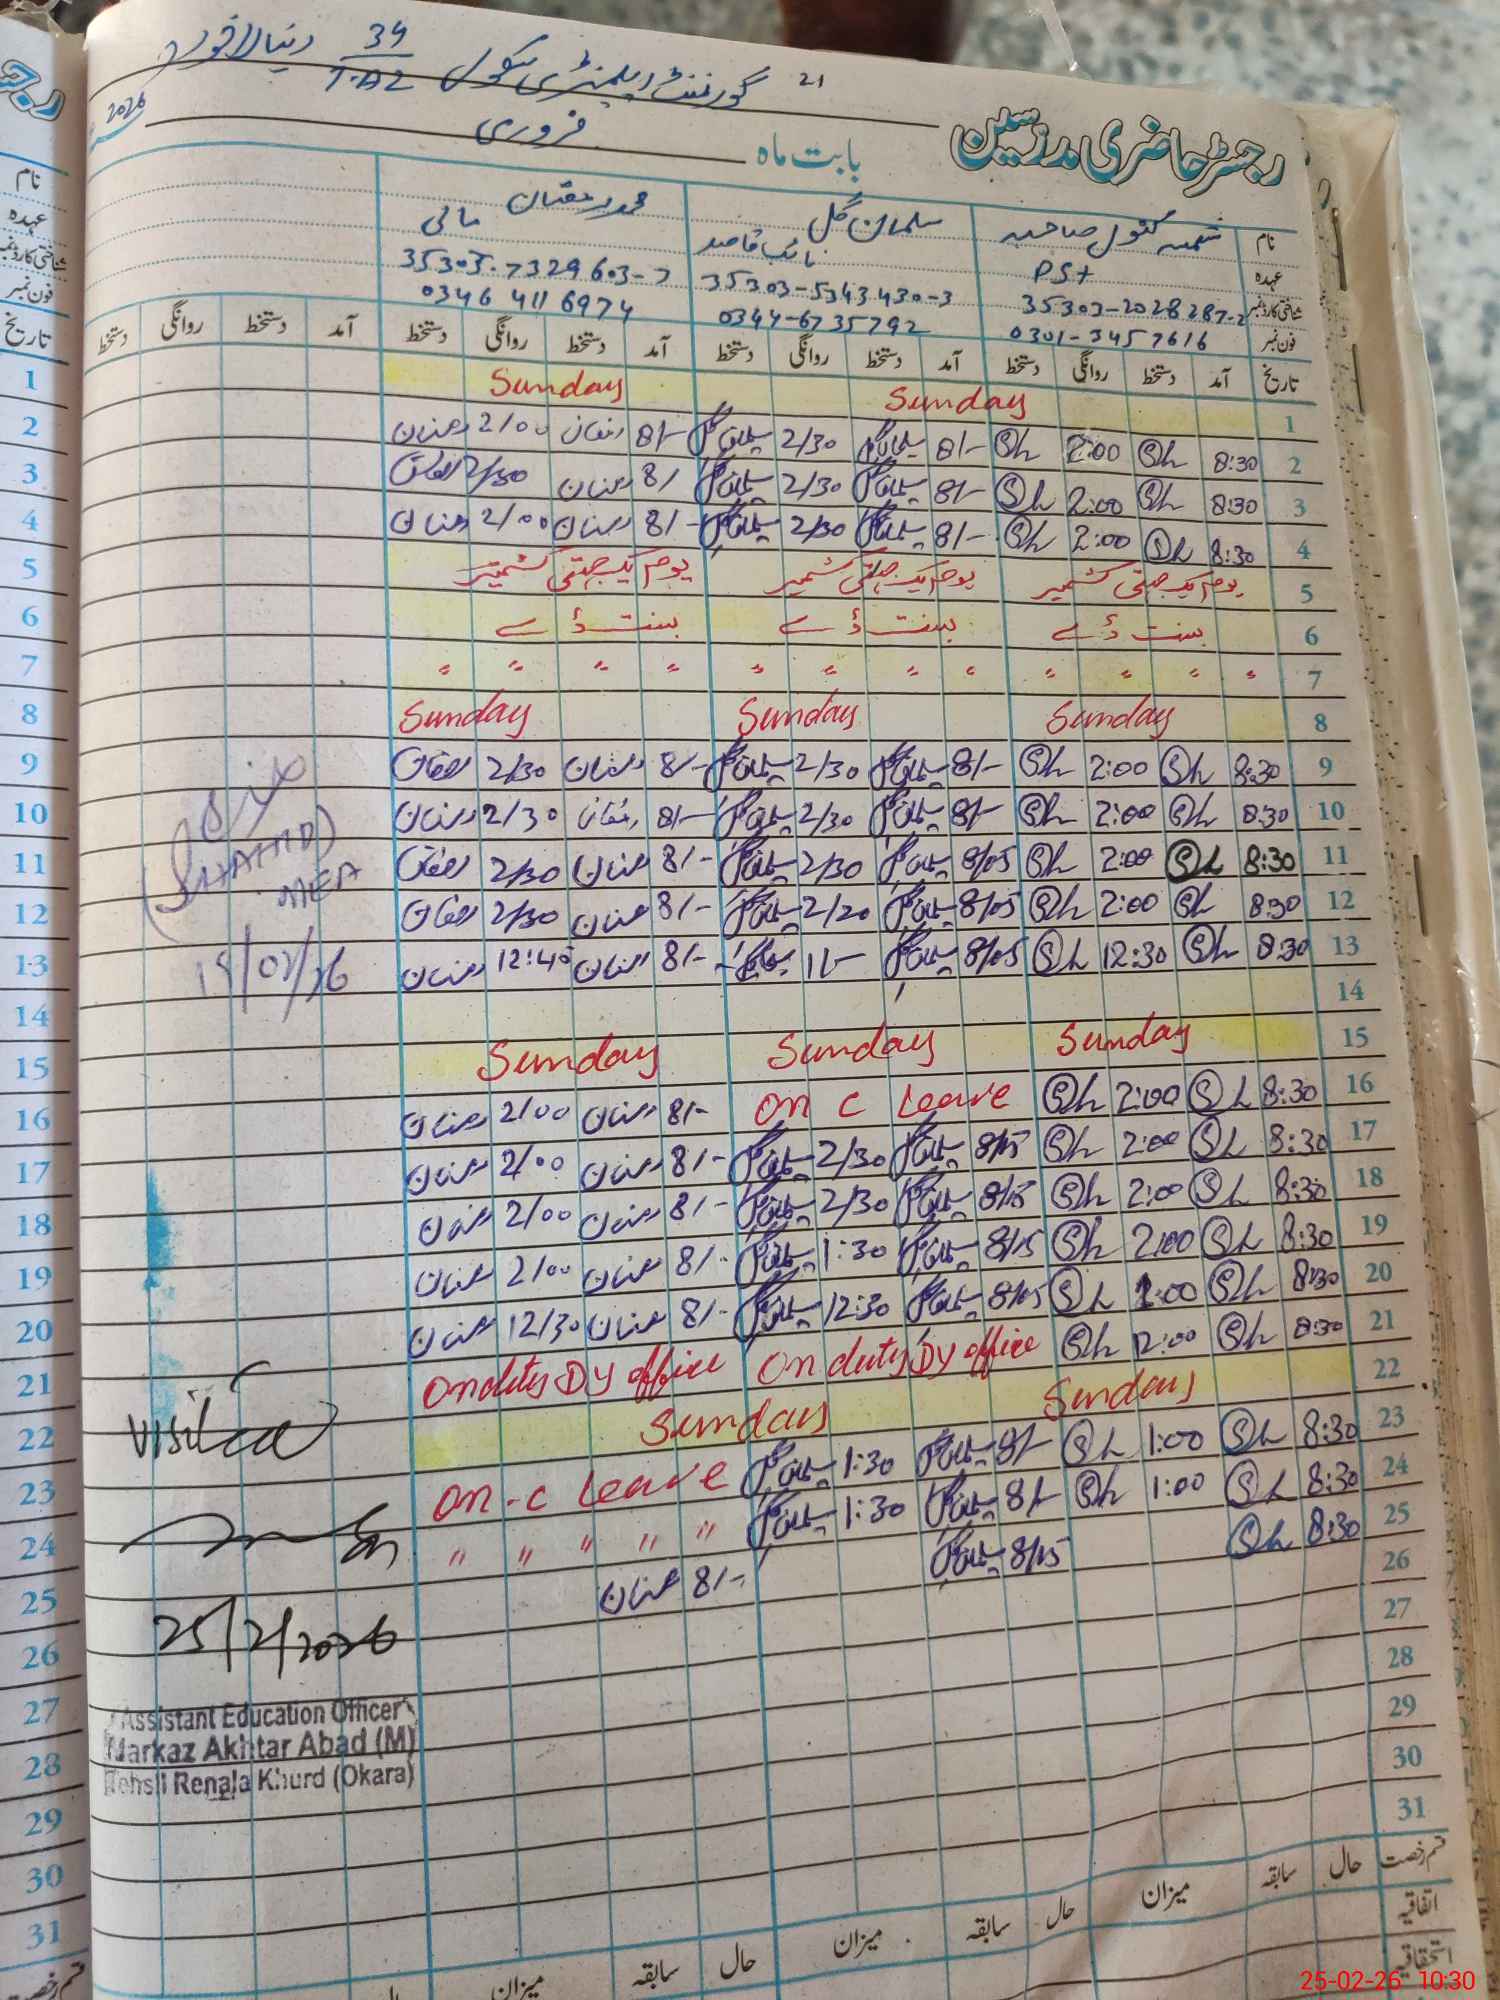 21
گورنمنٹ ایلمنٹری سکول 34
1-AL
2026
رجسٹر حاضری مدرسین
بابت ماہ فروری
نام
شمسہ کنول صاحبہ
سلمان گل
محمد رمضان
عہدہ
PST
نائب قاصد
مالی
شناختی کارڈ نمبر
35303-2028287-2
35303-5343430-3
35303-7329603-7
فون نمبر
0301-3457616
0344-6735792
0346 411 6974
تاریخ آمد دستخط روانگی دستخط آمد دستخط روانگی دستخط آمد دستخط روانگی دستخط آمد دستخط روانگی دستخط
1 Sunday Sunday
2 8:30 Sh 2:00 Sh 8/- سلمان گل 2/30 سلمان گل 8/- رمضان 2/00 رمضان
3 8:30 Sh 2:00 Sh 8/- سلمان گل 2/30 سلمان گل 8/ رمضان 2/30 رمضان
4 8:30 Sh 2:00 Sh 8/- سلمان گل 2/30 سلمان گل 8/- رمضان 2/00 رمضان
5 یوم یک جہتی کشمیر یوم یک جہتی کشمیر یوم یک جہتی کشمیر
6 بسنت ڈے بسنت ڈے بسنت ڈے
7 " " " " " " " " " " " "
8 Sunday Sunday Sunday
9 8:30 Sh 2:00 Sh 8/- سلمان گل 2/30 سلمان گل 8/- رمضان 2/30 رمضان
10 8:30 Sh 2:00 Sh 8/- سلمان گل 2/30 سلمان گل 8/- رمضان 2/30 رمضان
11 8:30 Sh 2:00 Sh 8/05 سلمان گل 2/30 سلمان گل 8/- رمضان 2/30 رمضان
12 8:30 Sh 2:00 Sh 8/05 سلمان گل 2/20 سلمان گل 8/- رمضان 2/30 رمضان
13 8:30 Sh 12:30 Sh 8/05 سلمان گل 1/- سلمان گل 8/- رمضان 12:40 رمضان
(SHAHID)
MEA
14
15 Sunday Sunday Sunday
16 8:30 Sh 2:00 Sh On C Leave 8/- رمضان 2/00 رمضان
17 8:30 Sh 2:00 Sh 8/15 سلمان گل 2/30 سلمان گل 8/- رمضان 2/00 رمضان
18 8:30 Sh 2:00 Sh 8/15 سلمان گل 2/30 سلمان گل 8/- رمضان 2/00 رمضان
19 8:30 Sh 2:00 Sh 8/15 سلمان گل 1:30 سلمان گل 8/- رمضان 2/00 رمضان
20 8:30 Sh 1:00 Sh 8/05 سلمان گل 12:30 سلمان گل 8/- رمضان 12/30 رمضان
21 8:30 Sh 12:00 Sh On duty DY office On duty DY office
22 Sunday Sunday
23 8:30 Sh 1:00 Sh 8/- سلمان گل 1:30 سلمان گل On - C Leave
24 8:30 Sh 1:00 Sh 8/- سلمان گل 1:30 سلمان گل " " " " "
25 8:30 Sh 8/15 سلمان گل 8/- رمضان
26
27
28
29
30
31
Visited
25/2/2026
Assistant Education Officer
Markaz Akhtar Abad (M)
Tehsil Renala Khurd (Okara)
قسم رخصت حال سابقہ میزان حال سابقہ میزان حال سابقہ میزان
اتفاقیہ
استحقاقیہ
نام
عہدہ
شناختی کارڈ نمبر
فون نمبر
تاریخ
1
2
3
4
5
6
7
8
9
10
11
12
13
14
15
16
17
18
19
20
21
22
23
24
25
26
27
28
29
30
31
قسم رخصت
25-02-26 10:30